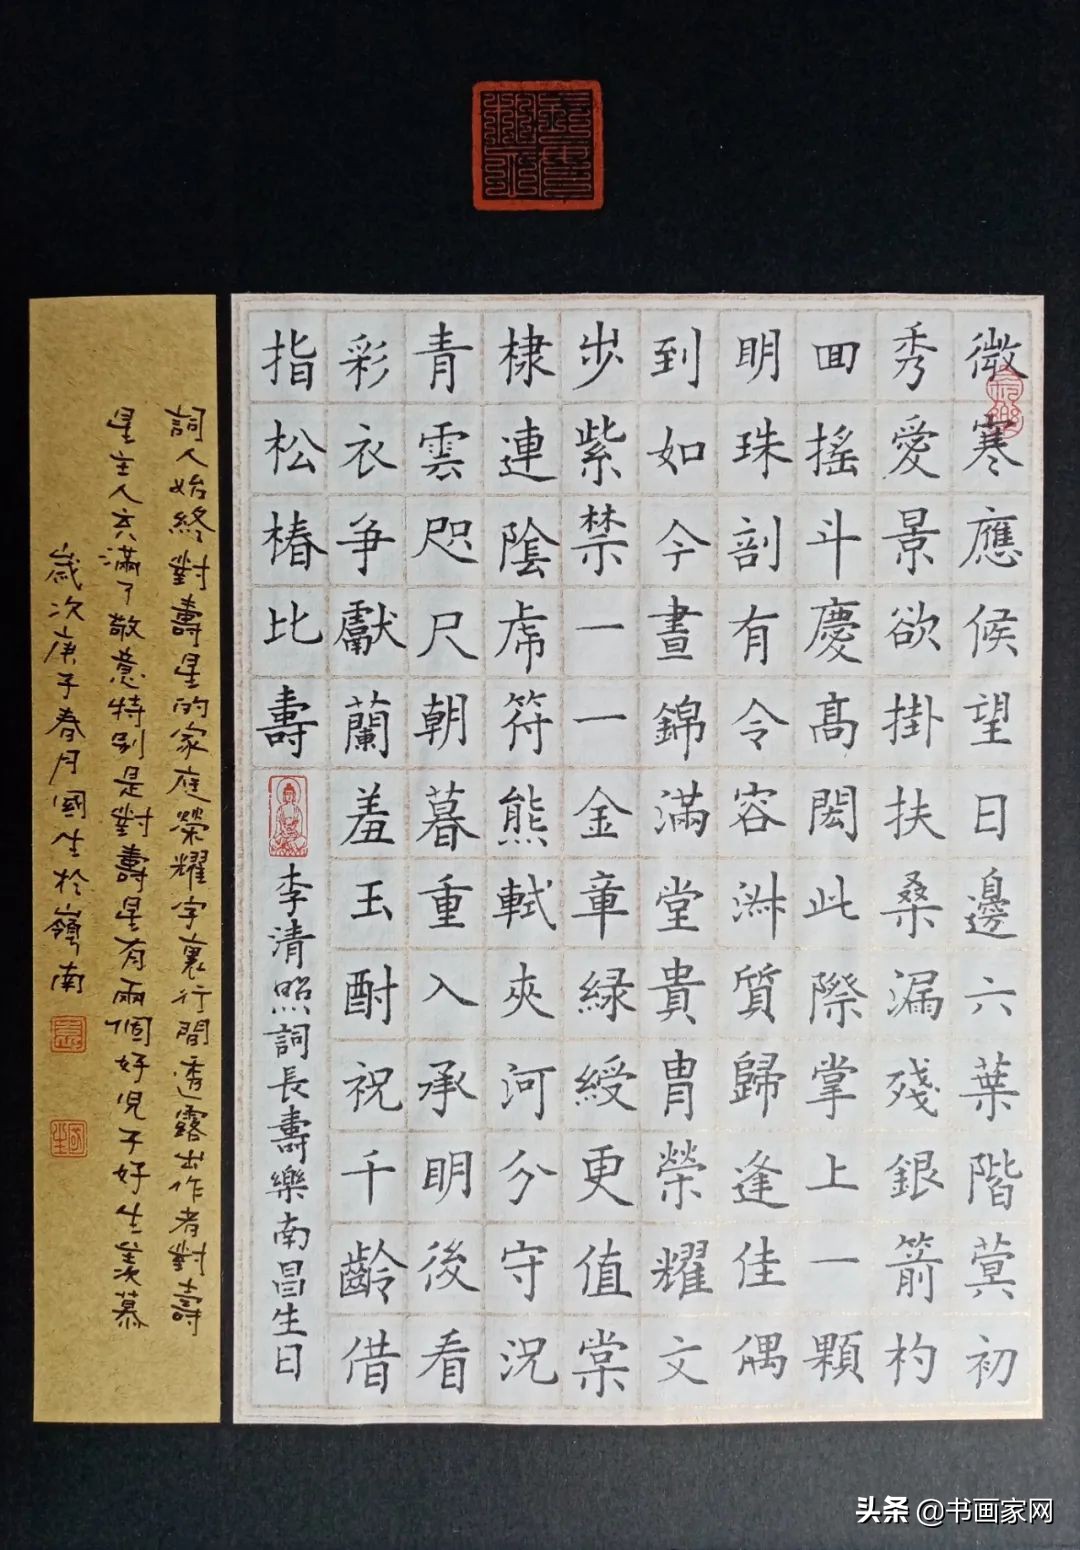 微寒應候望日邊六葉階蓂初
秀愛景欲掛扶桑漏殘銀箭杓
回搖斗慶高閎此際掌上一顆
明珠剖有令容淑質歸逢佳偶
到如今晝錦滿堂貴胄榮耀文
步紫禁一一金章綠綬更值棠
棣連陰虎符熊軾夾河分守況
青雲咫尺朝暮重入承明後看
彩衣爭獻蘭羞玉酎祝千齡借
指松椿比壽
李清照詞長壽樂南昌生日
詞人始終對壽星的家庭榮耀字裏行間透露出作者對壽
星主人充滿了敬意特別是對壽星有兩個好児子好生羨慕
歲次庚子春月國生於嶺南
头条 @书画家网